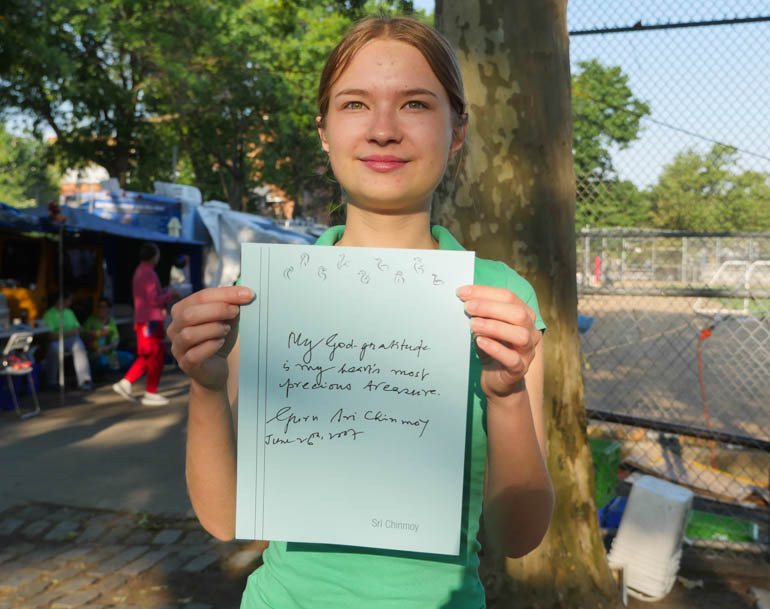 My God-gratitude
is my heart's most
precious treasure.
Guru Sri Chinmoy
June 26th, 2007
Sri Chinmoy